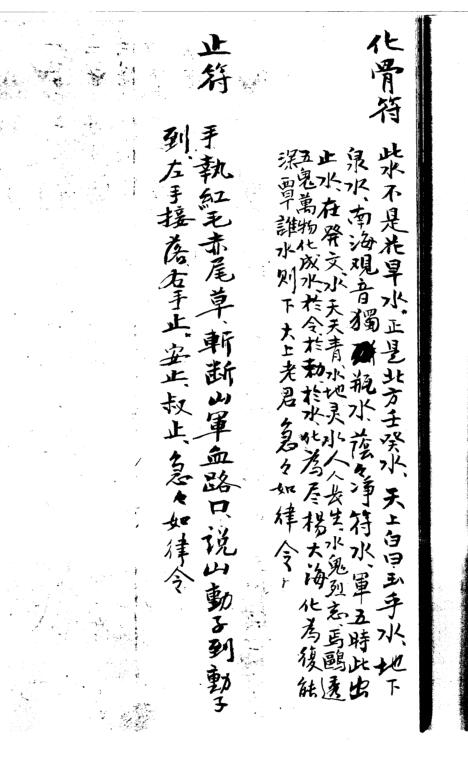 化骨符
此水不是非旱水。正是北方壬癸水、天上白日玉手水、地下
泉水、南海观音獨瓶水、蔭々净符水、軍五時此出
止水、在癸文、水天天青、水地灵水人人長生、水鬼烈忘、馬鷗透
五鬼萬物化成水、於令於勅於水、化為尽楊大海化為復能
深覃誰水则下大上老君急々如律令
止符
手執紅毛赤尾草、斬断山軍血路口、説山動子到動子
到、左手接落右手止。安止、叔止、急々如律令